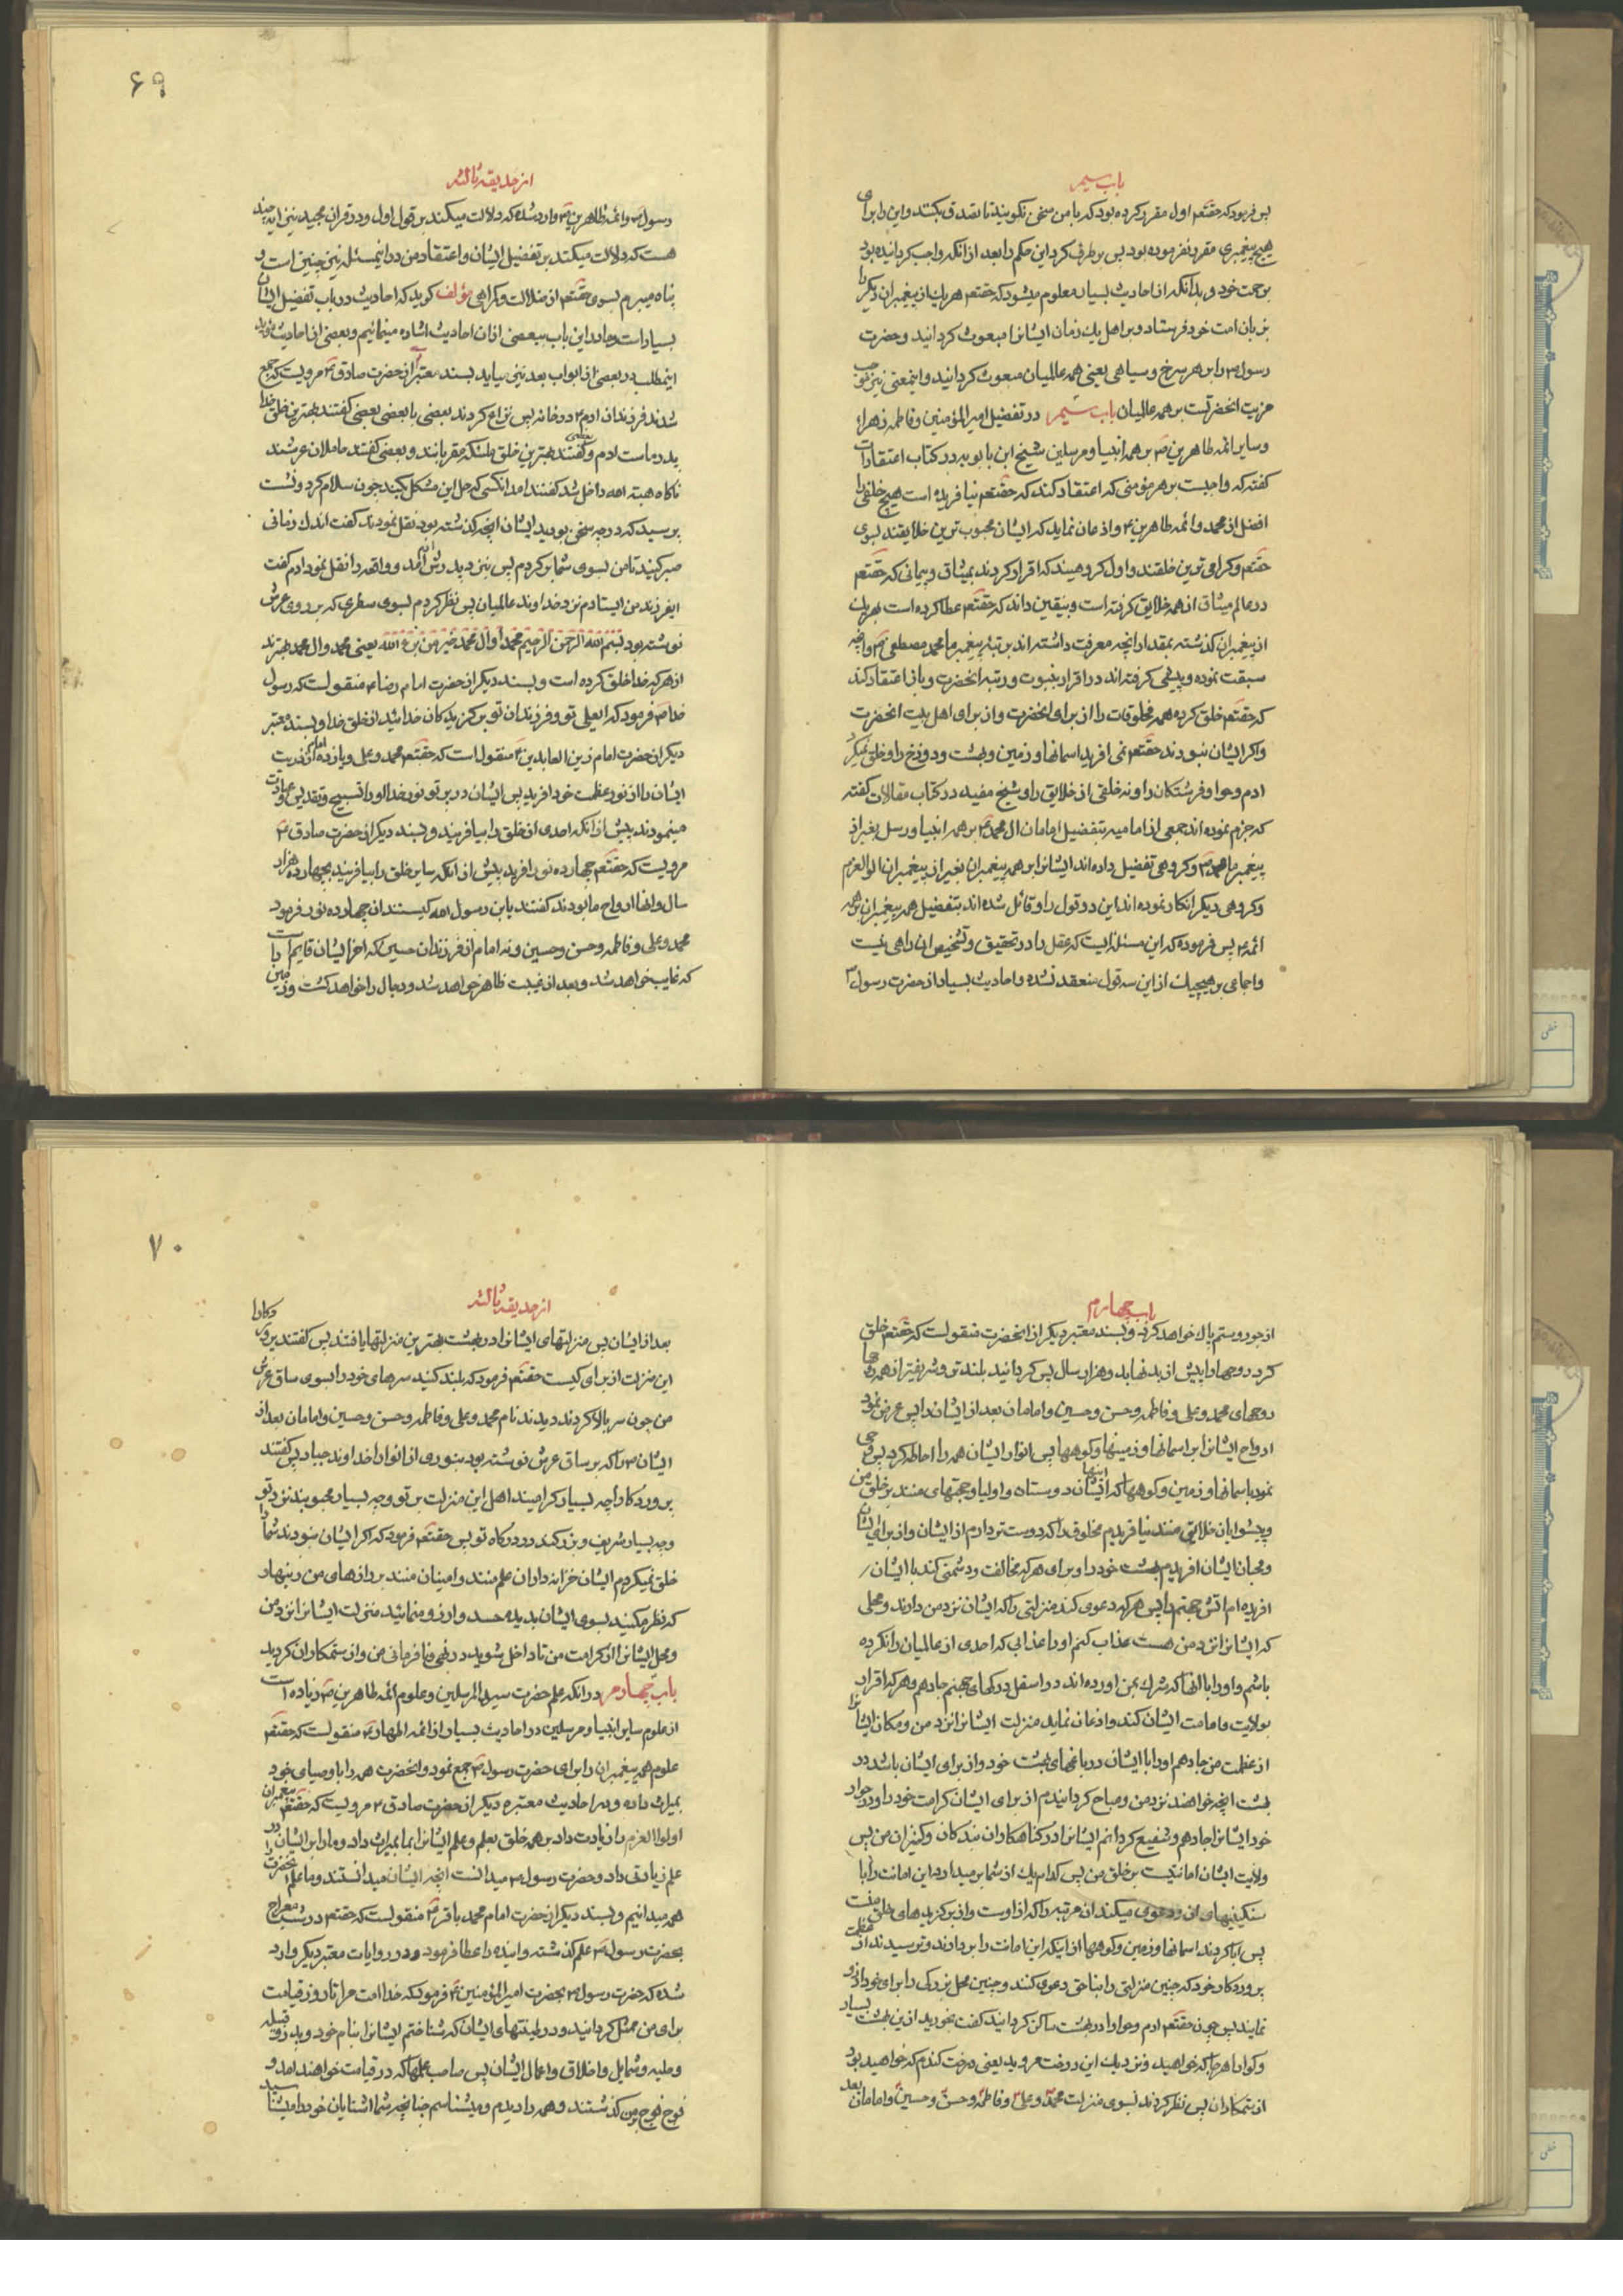 باب سیم
پس فرمود که حقتعم اول مقرر کرده بود که با من سخن نکویند تا تصدق بکنند و این را برای
هیچ پیغمبری مقرر نفرموده بود پس برطرف کرد این حکم را بعد از انکه واجب کردانیده بود
برحمت خود و بدانکه از احادیث بسیار معلوم میشود که حقتعم هر یک از پیغمبران دیکر را
بزبان امت خود فرستاد و بر اهل یک زمان ایشانرا مبعوث کردانید و حضرت
رسول ص را بر هر سرخ و سیاهی یعنی همه عالمیان مبعوث کردانید و اینمعنی نیز موجب
مزیت انحضرتست بر همه عالمیان باب سیم در تفضیل امیر المؤمنین و فاطمه زهرا
و سایر ائمه طاهرین ع بر همه انبیا و مرسلین شیخ ابن بابویه در کتاب اعتقادات
کفته که واجبست بر هر مؤمنی که اعتقاد کند که حقتعم نیافریده است هیچ خلقی را
افضل از محمد و ائمه طاهرین ع و اذعان نماید که ایشان محبوب ترین خلایقند بسوی
حقتعم و کرامی ترین خلقند و اول کروهیند که اقرار کردند بمیثاق و پیمانی که حقتعم
در عالم میثاق از همه خلایق کرفته است و بیقین داند که حقتعم عطا کرده است بهر یک
از پیغمبران کذشته بمقدار انچه معرفت داشته اند برتبه پیغمبر ما محمد مصطفی ص و انچه
سبقت نموده و پیشی کرفته اند در اقرار بنبوت و رتبه انحضرت و باز اعتقاد کند
که حقتعم خلق کرده همه مخلوقات را از برای انحضرت و از برای اهل بیت انحضرت
و اکر ایشان نبودند حقتعم نمی افرید اسمانها و زمین و بهشت و دوزخ را و خلق نمیکرد
ادم و حوا و فرشتکان را و نه خلقی از خلایق را و شیخ مفید در کتاب مقالات کفته
که جزم نموده اند جمعی از امامیه بتفضیل امامان ال محمد ع بر همه انبیا و رسل بغیر از
پیغمبر ما محمد ص و کروهی تفضیل داده اند ایشانرا بر همه پیغمبران بغیر از پیغمبران اولوالعزم
و کروهی دیکر انکار نموده اند این دو قول را و قائل شده اند بتفضیل همه پیغمبران بر همه
ائمه ع پس فرموده که این مسئله ایست که عقل را در تحقیق و تشخیص ان راهی نیست
و اجماعی بر هیچیک از این سه قول منعقد نشده و احادیث بسیار از حضرت رسول ص
۶۹
از حدیقه ثالثه
رسول ص و ائمه طاهرین ع وارد شده که دلالت میکند بر قول اول و در قران مجید نیز ایه چند
هست که دلالت میکند بر تفضیل ایشان و اعتقاد من در اینمسئله نیز چنین است و
پناه میبرم بسوی حقتعم از ضلالت و کمراهی مؤلف کوید که احادیث در باب تفضیل ایشان
بسیار است و ما در این باب ببعضی از ان احادیث اشاره مینمائیم و بعضی از احادیث
اینمطلب در بعضی از ابواب بعد نیز میاید بسند معتبر از حضرت صادق ع مرویست که جمع
شدند فرزندان ادم ع در خانه پس نزاع کردند بعضی با بعضی بعضی کفتند بهترین خلق خدا
پدر ماست ادم و بعضی کفتند بهترین خلق ملئکه مقربانند و بعضی کفتند حاملان عرشند
ناکاه هبة الله داخل شد کفتند امد انکسی که حل این مشکل بکند چون سلام کرد و نشست
پرسید که در چه سخن بودید ایشان انچه کذشته بود نقل نمودند کفت اندک زمانی
صبر کنید تا من بسوی شما برکردم پس نزد پدرش ادم امد و واقعه را نقل نمود ادم کفت
ایفرزند من ایستادم نزد خداوند عالمیان پس نظر کردم بسوی سطری که بر روی عرش
نوشته بود بسم الله الرحمن الرحیم محمد و ال محمد خیر من برء الله یعنی محمد و ال محمد بهترند
از هر که خدا خلق کرده است و بسند دیکر از حضرت امام رضا ع منقولست که رسول
خدا ص فرمود که ایعلی تو و فرزندان تو برکزیدکان خدائید از خلق خدا و بسند معتبر
دیکر از حضرت امام زین العابدین ع منقول است که حقتعم محمد و علی و یازده امام از ذریت
ایشان را از نور عظمت خود افرید پس ایشان در پرتو نور خدا او را تسبیح و تقدیس و عبادت
مینمودند پیش از انکه احدی از خلق را بیافریند و بسند دیکر از حضرت صادق ع
مرویست که حقتعم چهارده نور افرید پیش از انکه سایر خلق را بیافریند بچهارده هزار
سال و انها ارواح ما بودند کفتند یابن رسول الله کیستند ان چهارده نور فرمود
محمد و علی و فاطمه و حسن و حسین و نه امام از فرزندان حسین که اخر ایشان قایم است
که غایب خواهد شد و بعد از غیبت ظاهر خواهد شد و دجال را خواهد کشت و زمین را
باب چهارم
از جور و ستم پاک خواهد کرد و بسند معتبر دیکر از انحضرت منقولست که حقتعم خلق
کرد روحها را پیش از بدنها بدو هزار سال پس کردانید بلندتر و شریفتر از همه روحها
روحهای محمد و علی و فاطمه و حسن و حسین و امامان بعد از ایشان را پس عرض نمود
ارواح ایشانرا بر اسمانها و زمینها و کوهها پس انوار ایشان همه را احاطه کرد پس وحی
نمود باسمانها و زمین و کوهها که اینها دوستان و اولیا و حجتهای منند بر خلق من
و پیشوایان خلایق منند نیافریدم مخلوقی را که دوستتر دارم از ایشان و از برای ایشان
و محبان ایشان افریدم بهشت خود را و برای هر که مخالفت و دشمنی کند با ایشان
افریده ام اتش جهنم را پس هر که دعوی کند منزلتی را که ایشان نزد من دارند و محلی
که ایشانرا نزد من هست عذاب کنم او را عذابی که احدی از عالمیان را نکرده
باشم و او را با انها که شرک بمن اورده اند در اسفل درکهای جهنم جا دهم و هر که اقرار
بولایت و امامت ایشان کند و اذعان نماید منزلت ایشانرا نزد من و مکان ایشانرا
از عظمت من جا دهم او را با ایشان در باغهای بهشت خود و از برای ایشان باشد در
بهشت انچه خواهند نزد من و مباح کردانیدم از برای ایشان کرامت خود را و در جوار
خود ایشانرا جا دهم و شفیع کردانم ایشانرا در کناهکاران بندکان و کنیزان من پس
ولایت ایشان امانتیست بر خلق من پس کدام یک از شما برمیدارد این امانت را با
سنکینیهای ان و دعوی میکند ان مرتبه را که از اوست و از برکزیدهای خلق منست
پس ابا کردند اسمانها و زمین و کوهها از اینکه این امانت را بردارند و ترسیدند از عظمت
پروردکار خود که چنین منزلتی را بناحق دعوی کنند و چنین محل بزرکی را برای خود ارزو
نمایند پس چون حقتعم ادم و حوا را در بهشت ساکن کردانید کفت بخورید از این بهشت بسیار
و کوارا هر جا که خواهید و نزدیک این درخت مروید یعنی درخت کندم که خواهید بود
از ستمکاران پس نظر کردند بسوی منزلت محمد و علی و فاطمه و حسن و حسین و امامان بعد
۷۰
از حدیقه ثالثه
بعد از ایشان پس منزلتهای ایشانرا در بهشت بهترین منزلتها یافتند پس کفتند پروردکارا
این منزلت از برای کیست حقتعم فرمود که بلند کنید سرهای خود را بسوی ساق عرش
من چون سر بالا کردند دیدند نام محمد و علی و فاطمه و حسن و حسین و امامان بعد از
ایشان ع را که بر ساق عرش نوشته بود بنوری از انوار خداوند جبار پس کفتند
پروردکارا چه بسیار کرامیند اهل این منزلت بر تو و چه بسیار محبوبند نزد تو
و چه بسیار شریف و بزرکند در درکاه تو پس حقتعم فرمود که اکر ایشان نبودند شما را
خلق نمیکردم ایشان خزانه داران علم منند و امینان منند بر رازهای من زینهار
که نظر مکنید بسوی ایشان بدیده حسد و ارزو منمائید منزلت ایشانرا نزد من
و محل ایشانرا از کرامت من تا داخل شوید در نهی و نافرمانی من و از ستمکاران کردید
باب چهارم در انکه علم حضرت سید المرسلین و علوم ائمه طاهرین ع زیاده است
از علوم سایر انبیا و مرسلین در احادیث بسیار از ائمه اطهار ع منقولست که حقتعم
علوم همه پیغمبران را برای حضرت رسول ص جمع نمود و انحضرت همه را باوصیای خود
بمیراث داده و در احادیث معتبره دیکر از حضرت صادق ع مرویست که حقتعم پیغمبران
اولوالعزم را زیادت داد بر همه خلق بعلم و علم ایشانرا بما بمیراث داد و ما را بر ایشان در
علم زیادتی داد و حضرت رسول ص میدانست انچه ایشان میدانستند و ما علم انحضرت را
همه میدانیم و بسند دیکر از حضرت امام محمد باقر ع منقولست که حقتعم در شب معراج
بحضرت رسول ص علم کذشته و اینده را عطا فرمود و در روایات معتبر دیکر وارد
شده که حضرت رسول ص بحضرت امیر المؤمنین ع فرمود که خدا امت مرا تا روز قیامت
برای من ممثل کردانید و در طینتهای ایشان که شناختم ایشانرا بنام خود و پدر و قبیله
و حلیه و شمایل و اخلاق و اعمال ایشان پس صاحب علمها که در قیامت خواهند امد و
فوج فوج بر من کذشتند و همه را دیدم و میشناسم چنانچه شما اشنایان خود را میشناسید